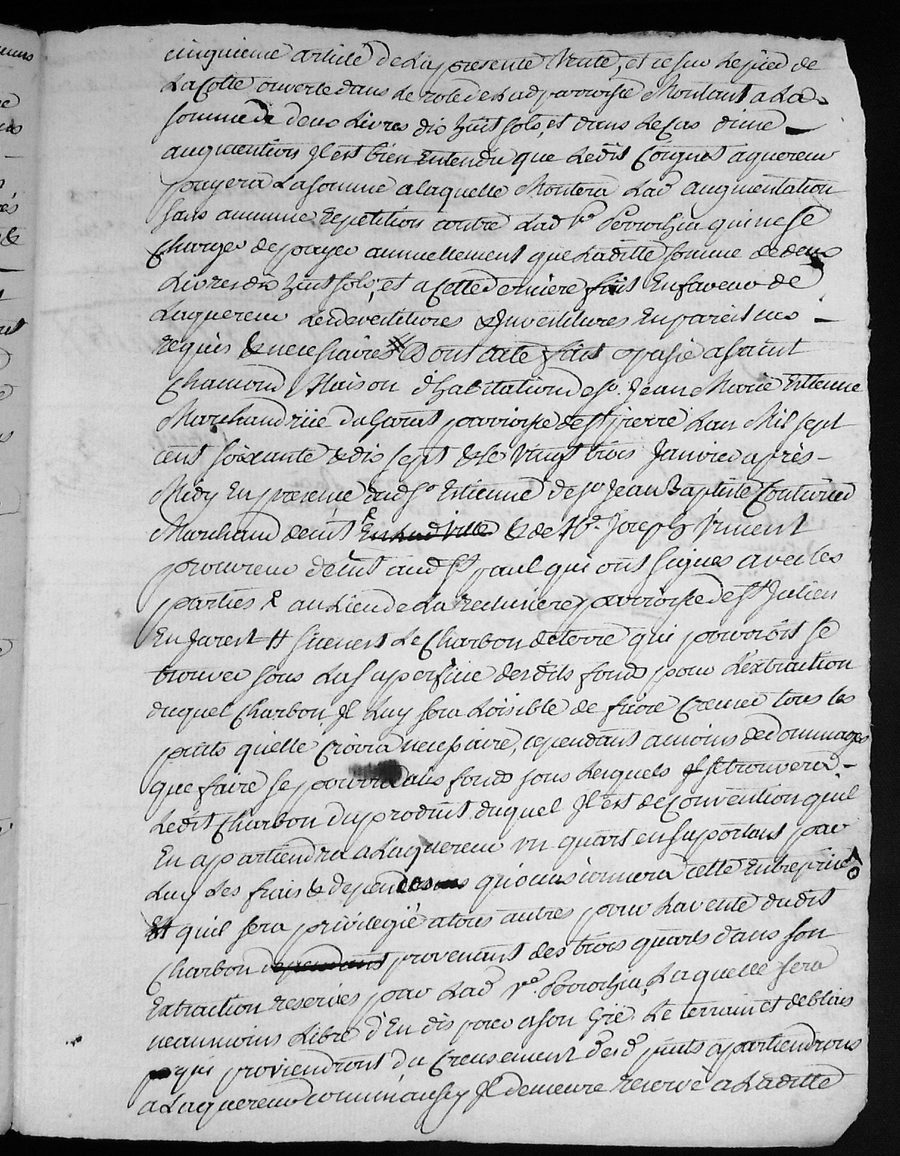 cinquieme article de La presente Vente, et ce sur Le pied de
La Cotte ouverte dans Le role de Lad parroisse Montant a La
somme de deux Livres dix huit sols, et dans Le Cas d'une
augmention Il est bien Entendu que Ledit Coignet aquereur
payera La somme a laquelle Montera Lad augmentation
sans aucunne Repetition contre Lad Ve qui ne se
Charge de payer annuellement que La ditte somme de deux
Livres dix huit sols, et a Cette derniere fait En faveur de
Laquereur Les devetitures & Investitures En pareil cas
requis & necessaires # Dont acte fait & passé a saint
Chamond Maison d'habitation de sr. Jean Marie Estienne
Marchand rue du parroisse de st pierre Lan Mil sept
cent soixante & dix sept & le Vingt trois Janvier après
Midy En presence dud sr Estienne de sr Jean Baptiste Couturier
Marchand de cit En Lad Ville & de Me. Joseph Vincent
procureur de cit aud st paul qui ont signés avec les
parties & au Lieu de La parroisse de st Julien
En Jarest # Le Charbon de terre qui pourroit se
trouver sous La superficie desdits fonds pour L'extraction
duquel Charbon Il Luy sera Loisible de faire Creuser tous les
puits quelle Croira necessaire, cependant a moins de dommages
que faire se pourra dans fonds sous Lesquels Il se trouvera
Ledit Charbon du produit duquel Il est de Convention quil
En apartiendra a Laquereur un quart en suportant par
Luy Les frais & depences quoccasionnera cette Entreprise
Et quil sera privilegié a tous autres pour La vente dudit
Charbon cependant provenant des trois quarts dans son
Extraction reservés par Lad Ve. Laquelle sera
neanmoins Libre d'En disposer a son Gré, Le terrain et deblais
qui proviendront du Creusement desd puits apartiendront
a Laquereur comme aussy Il demeure reservé a Laditte